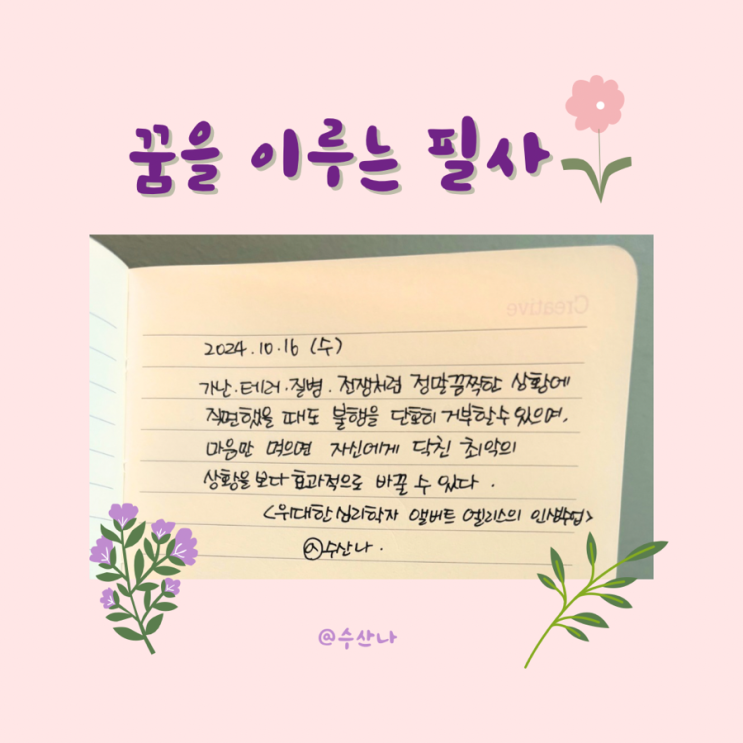 꿈을 이루는 필사
Creative
2024.10.16 (수)
가난.테러.질병.전쟁처럼 정말끔찍한 상황에
직면했을 때도 불행을 단호히 거부할수있으며,
마음만 먹으면 자신에게 닥친 최악의
상황을 보다 효과적으로 바꿀 수 있다.
<위대한심리학자 앨버트 엘리스의 인생수업>
수산나.
@수산나